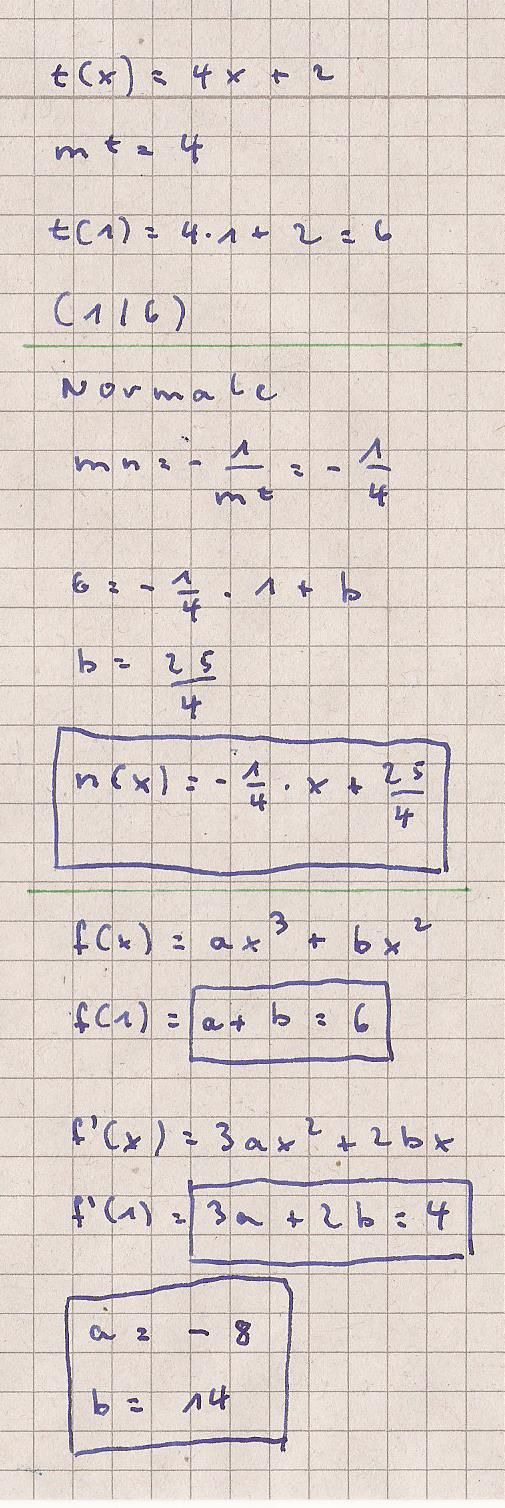 t(x) = 4x + 2
mt = 4
t(1) = 4·1 + 2 = 6
(1|6)
Normale
mn = - 1/mt = - 1/4
6 = - 1/4 · 1 + b
b = 25/4
n(x) = - 1/4 · x + 25/4
f(x) = ax³ + bx²
f(1) = a + b = 6
f'(x) = 3ax² + 2bx
f'(1) = 3a + 2b = 4
a = - 8
b = 14